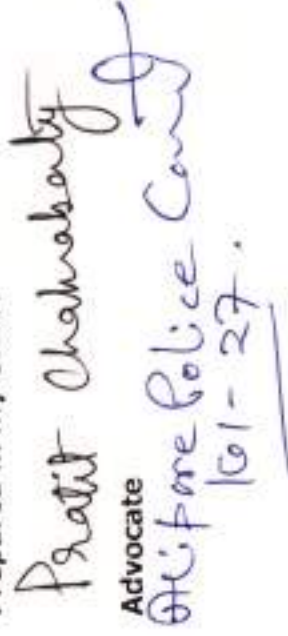 Pratit Chakraborty
Advocate
Alipore Police Court
161-27.